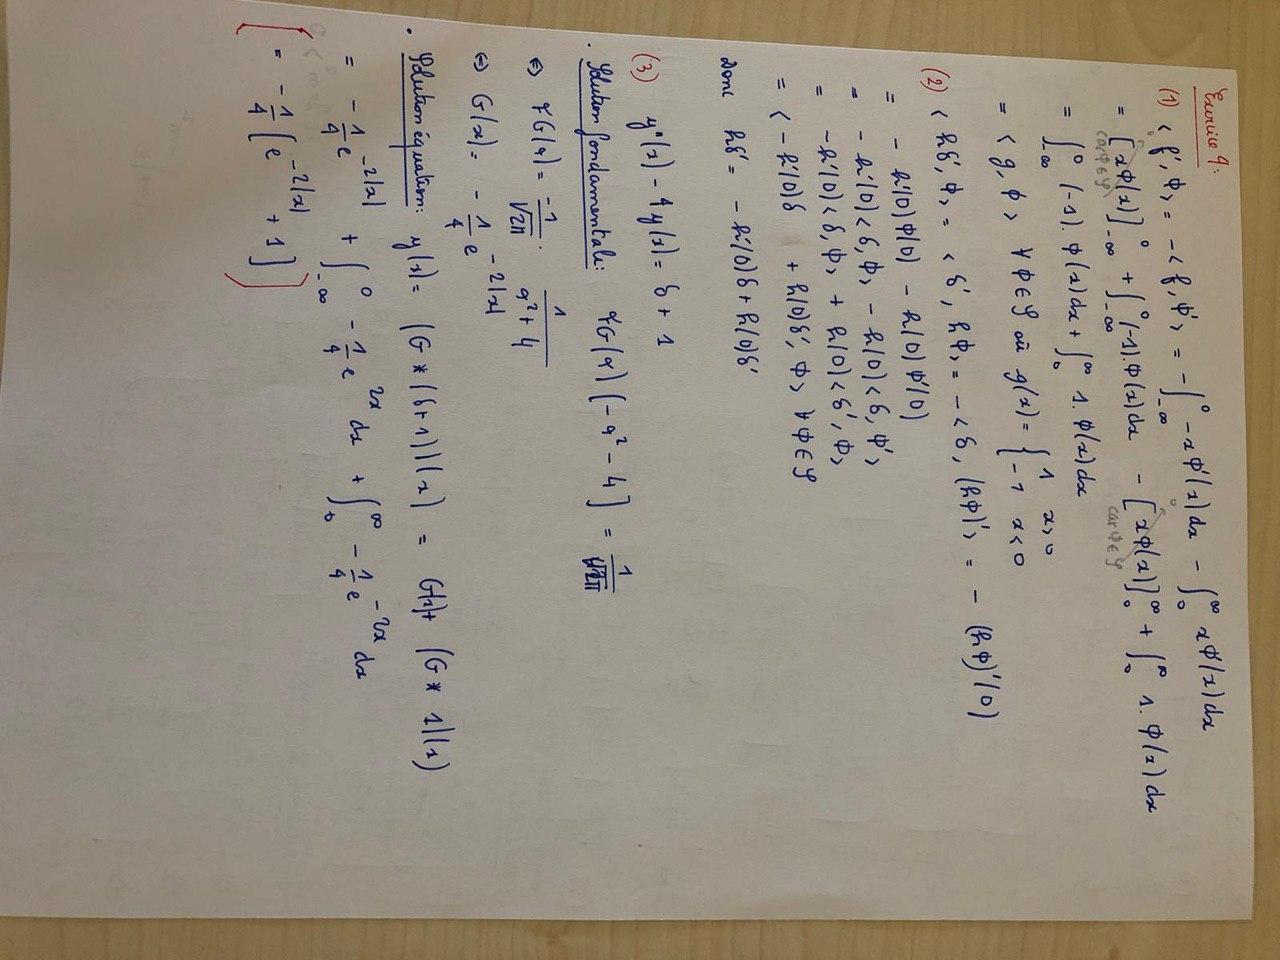 Exercice 4:
(1) < f', ϕ > = -< f, ϕ' > = -∫_{-∞}^{0} -x ϕ'(x) dx - ∫_{0}^{∞} x ϕ'(x) dx
= [xϕ(x)]_{-∞}^{0} + ∫_{-∞}^{0} (-1).ϕ(x) dx - [xϕ(x)]_{0}^{∞} + ∫_{0}^{∞} 1. ϕ(x) dx
car ϕ ∈ 𝒮 car ϕ ∈ 𝒮
= ∫_{-∞}^{0} (-1). ϕ(x) dx + ∫_{0}^{∞} 1. ϕ(x) dx
= < g, ϕ > ∀ ϕ ∈ 𝒮 où g(x) = { 1 x > 0
-1 x < 0
(2) < hδ', ϕ > = < δ', hϕ > = -< δ, (hϕ)' > = - (hϕ)'(0)
= - h'(0) ϕ(0) - h(0) ϕ'(0)
= - h'(0) < δ, ϕ > - h(0) < δ, ϕ' >
= -h'(0) < δ, ϕ > + h(0) < δ', ϕ >
= < - h'(0) δ + h(0) δ', ϕ > ∀ ϕ ∈ 𝒮
Donc hδ' = - h'(0) δ + h(0) δ'
(3) y''(x) - 4 y(x) = δ + 1
. Solution fondamentale: ℱG(α) [-α² - 4] = 1/√2π
⇔ ℱG(α) = -1/√2π . 1/(α² + 4)
⇔ G(x) = - 1/4 e^{-2|x|}
. Solution équation: y(x) = (G * (δ+1))(x) = G(x) + (G * 1)(x)
= - 1/4 e^{-2|x|} + ∫_{-∞}^{0} - 1/4 e^{2x} dx + ∫_{0}^{∞} - 1/4 e^{-2x} dx
[ = - 1/4 [e^{-2|x|} + 1] ]